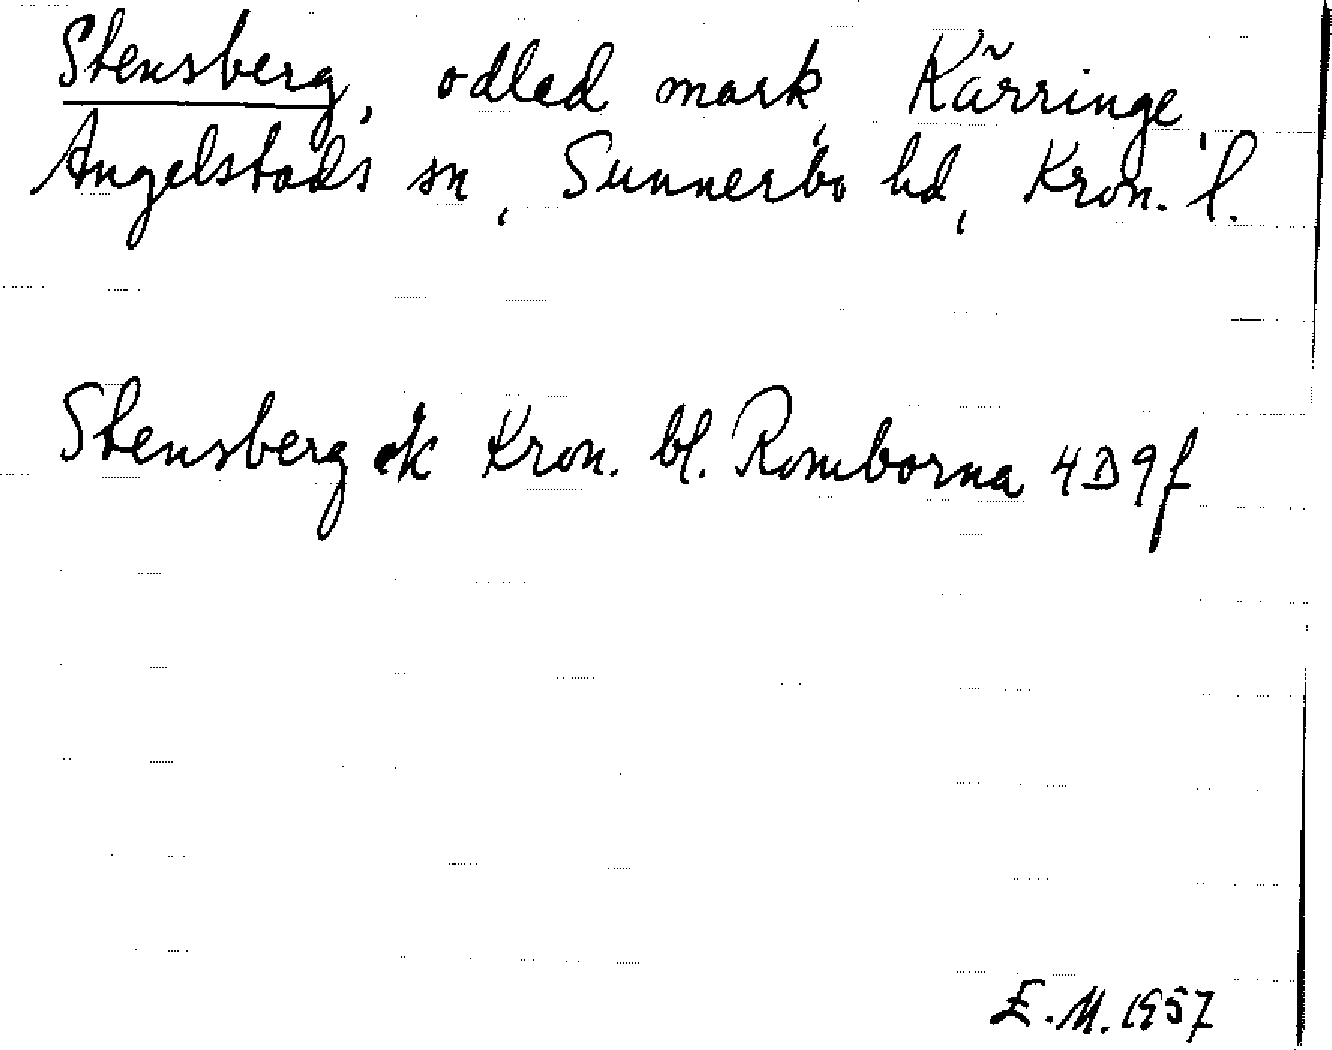 Stensberg, odlad mark, Kärringe,
Angelstads sn, Sunnerbo hd, Kron. l.
Stensberg ek Kron. bl. Romborna 4D9f
E.M. 1957